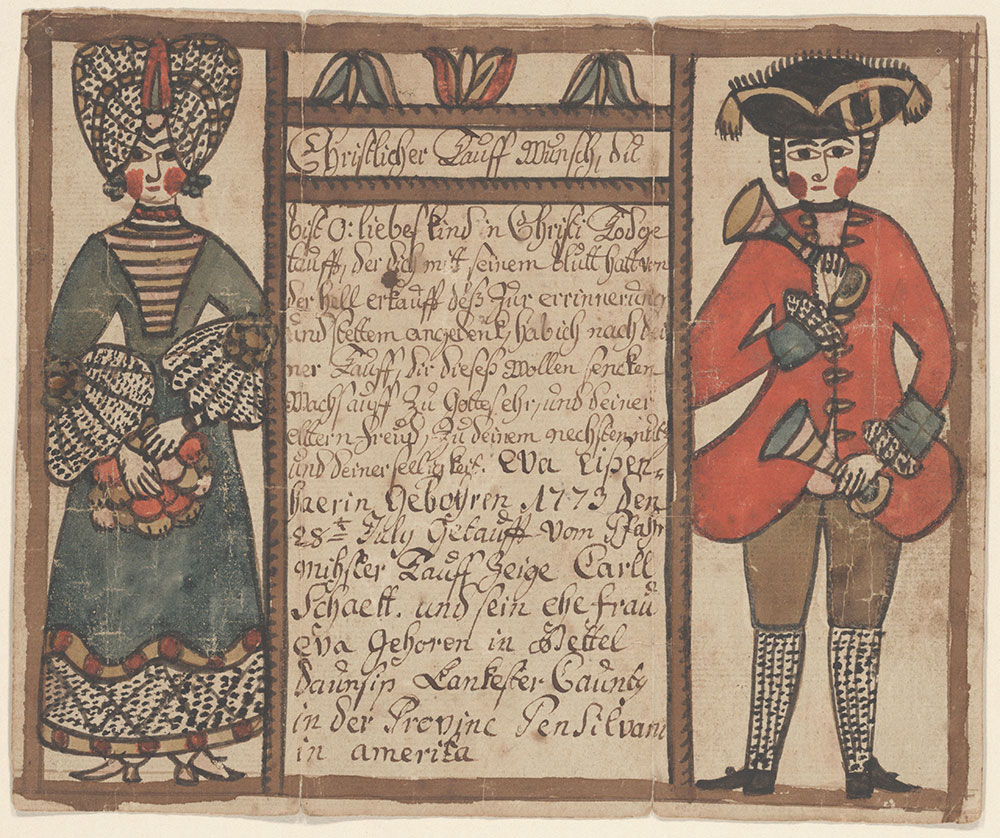 Christlicher Tauff Wunsch, du
bist O: liebes kind in Christi Tod ge
taufft, der dich mitt seinem blutt hatt von
der hell erkaufft deß Zur errinnerung
und stettem angedenk, hab ich nach dei
ner Tauff, dir dieseß Wollen sencken
Wachs auff zu Gottes ehr, und deiner
eltern freud, Zu deinem nechsten nutz
und deiner seeligkeit. Eva Lipen-
haerin Gebohren 1773 den
28t July Getaufft vom Pfahr
mihster Tauff Zeige Carll
Schaett. und sein ehe frau
Eva Gehoren in Bettel
daunsip Lankester Caunty
in der Provinc Pensilvani
in amerika